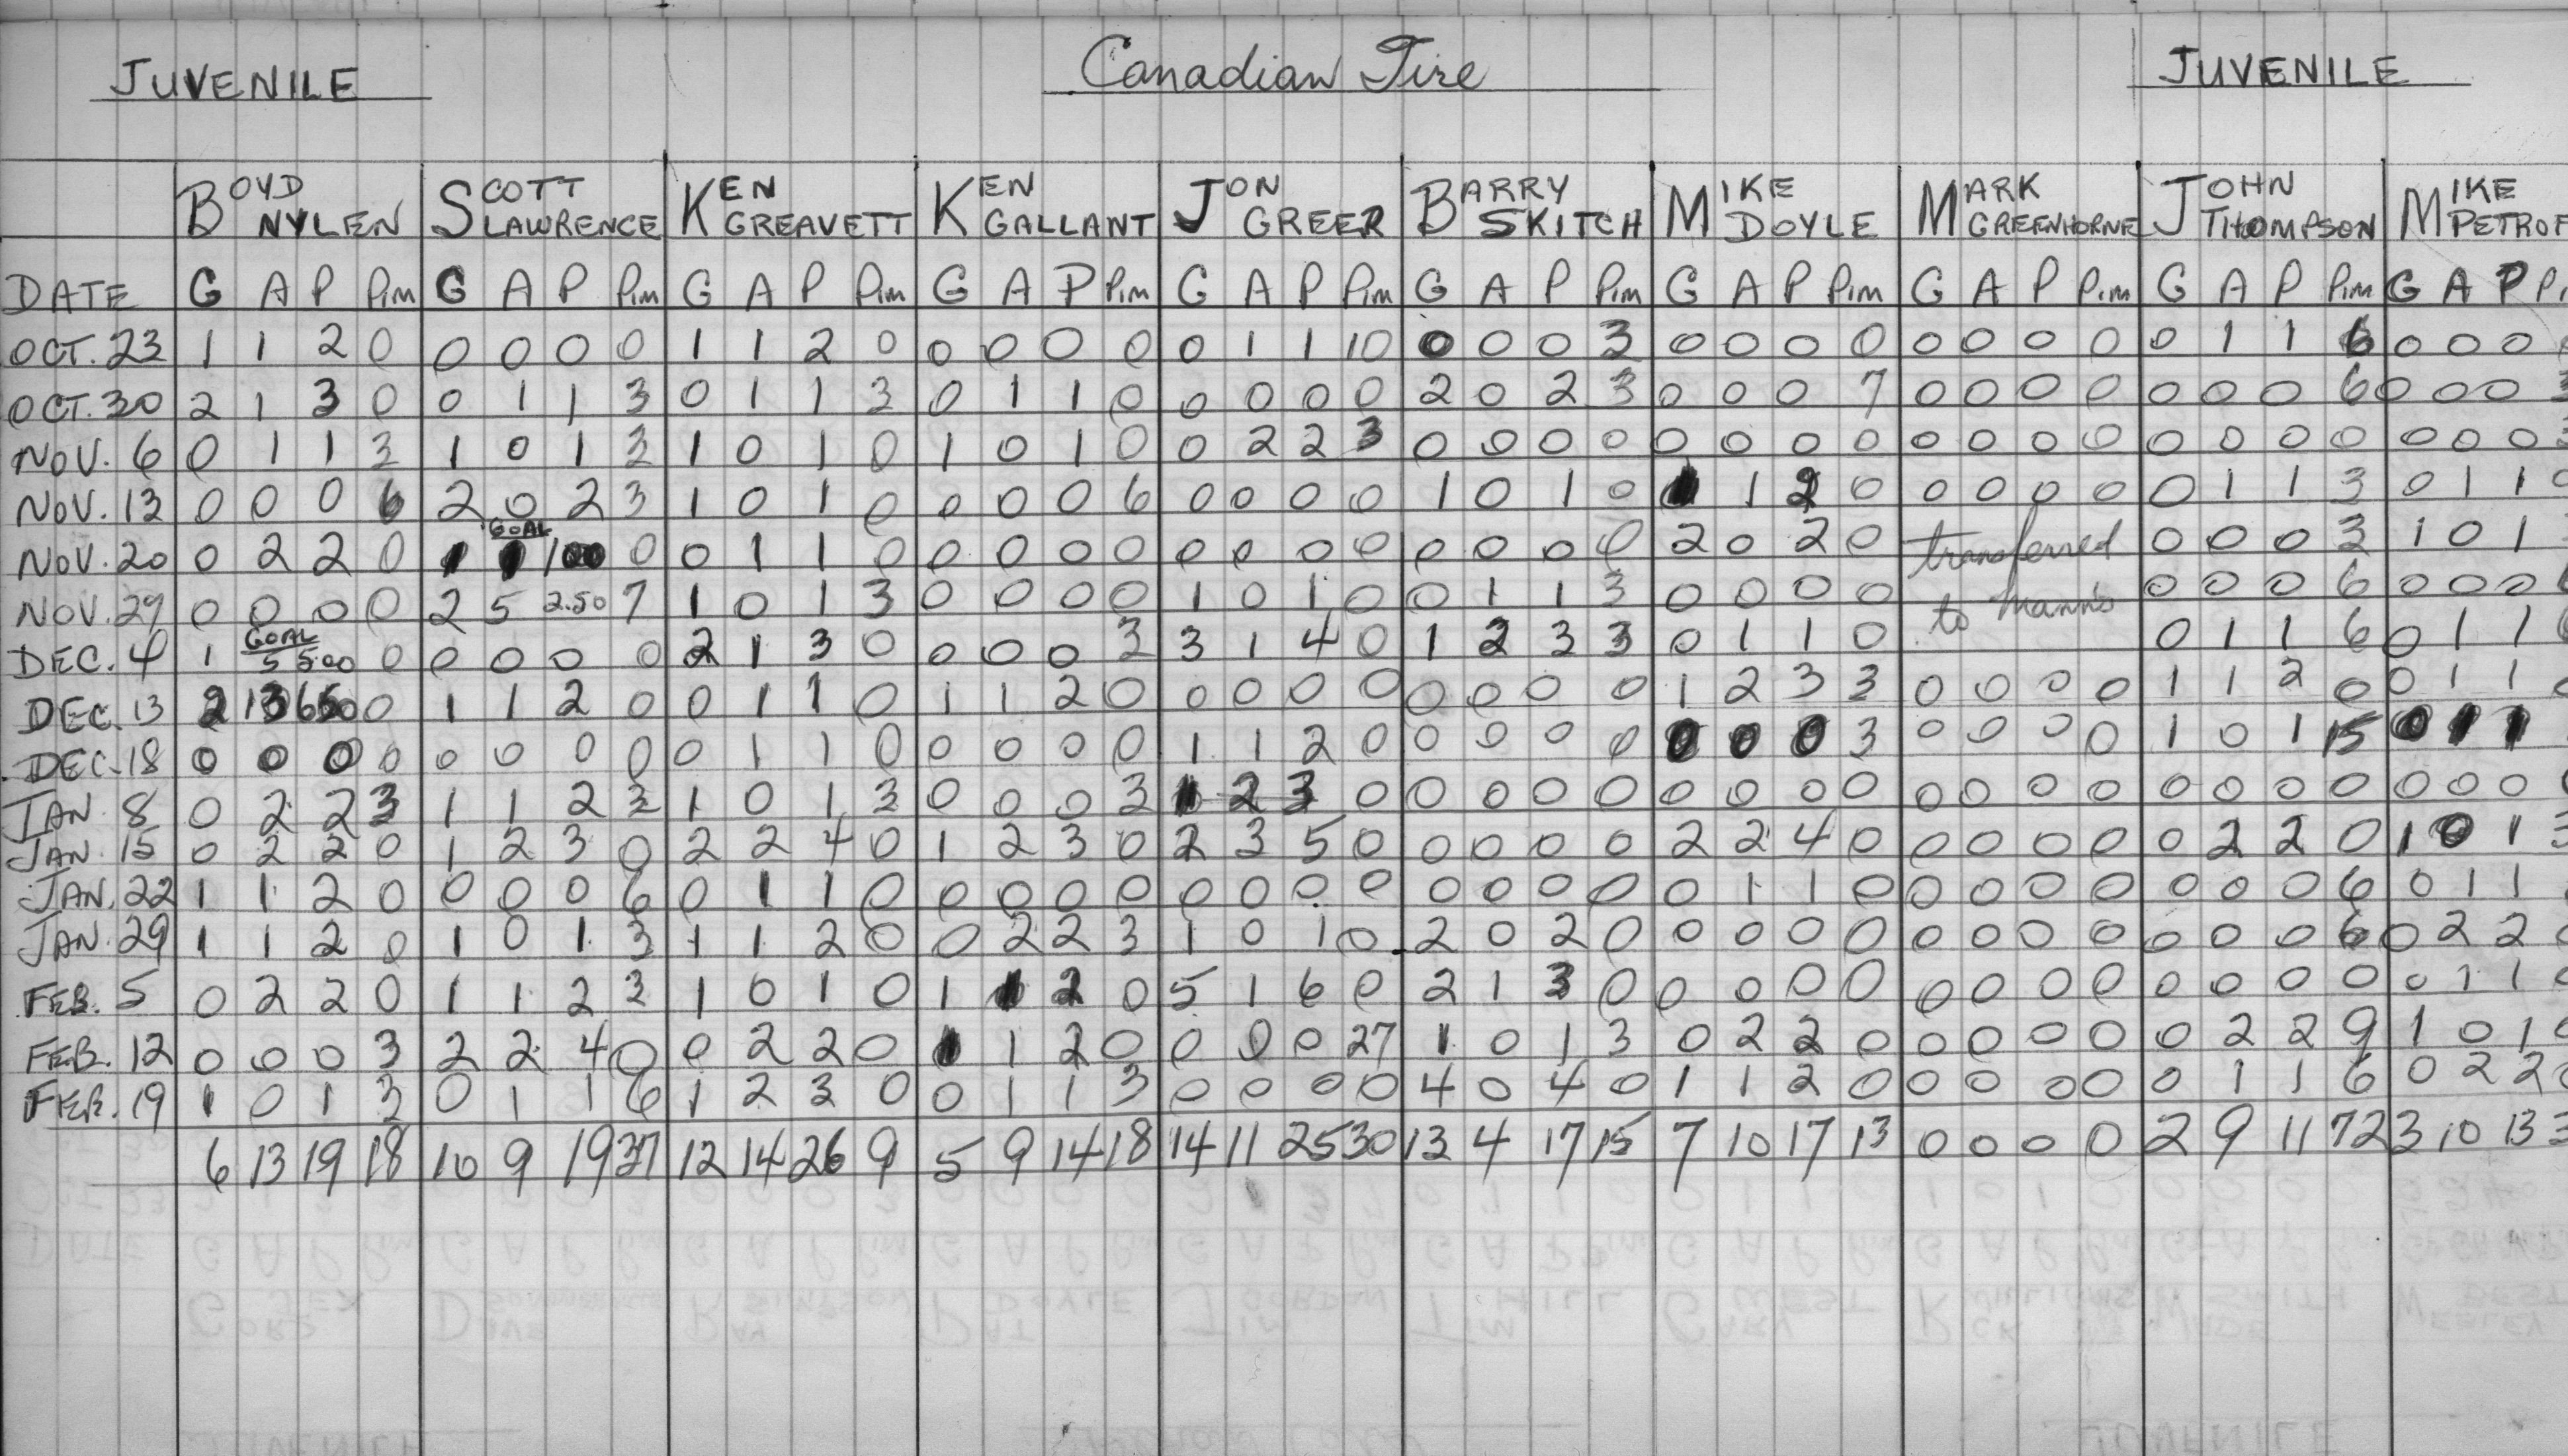 JUVENILE Canadian Tire JUVENILE
BOYD NYLEN SCOTT LAWRENCE KEN GREAVETT KEN GALLANT JON GREER BARRY SKITCH MIKE DOYLE MARK GREENHORNE JOHN THOMPSON MIKE PETROF
DATE G A P Pim G A P Pim G A P Pim G A P Pim G A P Pim G A P Pim G A P Pim G A P Pim G A P Pim G A P
OCT. 23 1 1 2 0 0 0 0 0 1 1 2 0 0 0 0 0 0 1 1 10 0 0 0 3 0 0 0 0 0 0 0 0 0 1 1 6 0 0 0
OCT. 30 2 1 3 0 0 1 1 3 0 1 1 3 0 1 1 0 0 0 0 0 2 0 2 3 0 0 0 7 0 0 0 0 0 0 0 6 0 0 0 3
NOV. 6 0 1 1 3 1 0 1 3 1 0 1 0 1 0 1 0 0 2 2 3 0 0 0 0 0 0 0 0 0 0 0 0 0 0 0 0 0 0 0 3
NOV. 13 0 0 0 6 2 0 2 3 1 0 1 0 0 0 0 6 0 0 0 0 1 0 1 0 1 1 2 0 0 0 0 0 0 1 1 3 0 1 1
GOAL
NOV. 20 0 2 2 0 0 0 1 1 0 0 0 0 0 0 0 0 0 0 0 0 0 2 0 2 0 transferred 0 0 0 3 1 0 1
NOV. 29 0 0 0 0 2 5 2.50 7 1 0 1 3 0 0 0 0 1 0 1 0 0 1 1 3 0 0 0 0 to Manns 0 0 0 6 0 0 0
GOAL
DEC. 4 1 5 5.00 0 0 0 0 0 2 1 3 0 0 0 0 3 3 1 4 0 1 2 3 3 0 1 1 0 0 1 1 6 0 1 1
DEC. 13 2 0 1 1 2 0 0 1 1 0 1 1 2 0 0 0 0 0 0 0 0 0 1 2 3 3 0 0 0 0 1 1 2 0 0 1 1
DEC. 18 0 0 0 0 0 0 0 0 0 1 1 0 0 0 0 0 1 1 2 0 0 0 0 0 0 0 0 3 0 0 0 0 1 0 1 15 0 1 1
JAN. 8 0 2 2 3 1 1 2 3 1 0 1 3 0 0 0 3 1 2 3 0 0 0 0 0 0 0 0 0 0 0 0 0 0 0 0 0 0 0 0
JAN. 15 0 2 2 0 1 2 3 0 2 2 4 0 1 2 3 0 2 3 5 0 0 0 0 0 2 2 4 0 0 0 0 0 0 2 2 0 1 0 1 3
JAN. 22 1 1 2 0 0 0 0 6 0 1 1 0 0 0 0 0 0 0 0 0 0 0 0 0 0 1 1 0 0 0 0 0 0 0 0 6 0 1 1
JAN. 29 1 1 2 0 1 0 1 3 1 1 2 0 0 2 2 3 1 0 1 0 2 0 2 0 0 0 0 0 0 0 0 0 0 0 0 6 0 2 2
FEB. 5 0 2 2 0 1 1 2 3 1 0 1 0 1 1 2 0 5 1 6 0 2 1 3 0 0 0 0 0 0 0 0 0 0 0 0 0 0 1 1
FEB. 12 0 0 0 3 2 2 4 0 0 2 2 0 1 1 2 0 0 0 0 27 1 0 1 3 0 2 2 0 0 0 0 0 0 2 2 9 1 0 1
FEB. 19 1 0 1 3 0 1 1 6 1 2 3 0 0 1 1 3 0 0 0 0 4 0 4 0 1 1 2 0 0 0 0 0 0 1 1 6 0 2 2
6 13 19 18 10 9 19 37 12 14 26 9 5 9 14 18 14 11 25 30 13 4 17 15 7 10 17 13 0 0 0 0 2 9 11 72 3 10 13 3